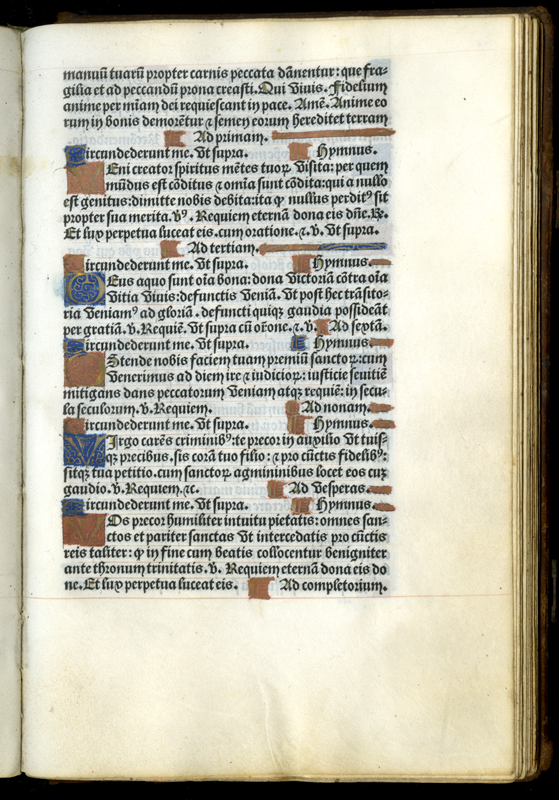 manuū tuarū propter carnis peccata dānentur: que fra-
gilia et ad peccandū prona creasti. Qui vivis. Fidelium
anime per miam dei requiescant in pace. Amē. Anime eo
rum in bonis demorētur ⁊ semen eorum hereditet terram
Ad primam.
Circundederunt me. Vt supra. Hymnus.
Eni creator spiritus mētes tuoꝝ visita: per quem
mūdus est cōditus ⁊ omīa sunt cōdita: qui a nullo
est genitus: dimitte nobis debita: ita ꝙ nullus perditꝰ sit
propter sua merita. ℣. Requiem eternā dona eis dn̄e. ℟.
Et lux perpetua luceat eis. cum oratione. ⁊. v. Vt supra.
Ad tertiam.
Circundederunt me. Vt supra. Hymnus.
Deus a quo sunt oīa bona: dona victoriā cōtra oīa
vitia vivis: defunctis veniā. Vt post hec trāsito-
ria veniamꝰ ad gloriā. defuncti quiqꝫ gaudia possideāt
per gratiā. v. Requiē. Vt supra cū orōne. ⁊. v. Ad sextā.
Circundederunt me. Vt supra. Hymnus.
Stende nobis faciem tuam premiū sanctoꝝ: cum
venerimus ad diem ire ⁊ iudicioꝝ: iusticie sevitiē
mitigans dans peccatorum veniam atqꝫ requiē: in secu-
la seculorum. v. Requiem. Ad nonam.
Circundederunt me. Vt supra. Hymnus.
Virgo carēs criminibꝰ: te precor in auxilio vt tuis-
qꝫ precibus. sis corā tuo filio: ⁊ pro cūctis fidelibꝰ:
sitqꝫ tua petitio. cum sanctoꝝ agmininibus locet eos cuꝫ
gaudio. v. Requiem. ⁊c. Ad vesperas.
Circundederunt me. Vt supra. Hymnus.
Vos precor humiliter intuitu pietatis: omnes san-
ctos et pariter sanctas vt intercedatis pro cūctis
reis taliter: ꝙ in fine cum beatis collocentur benigniter
ante thronum trinitatis. v. Requiem eternā dona eis do
ne. Et lux perpetua luceat eis. Ad completorium.